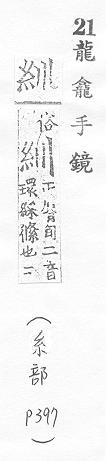 21 龍龕手鏡
俗紃正脣旬二音環綵絛也二
(糸部 P397)